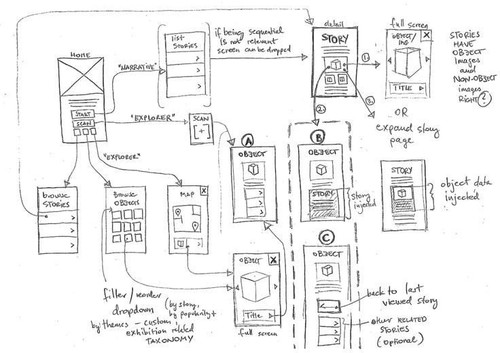 list
STORIES
if being sequential
is not relevant
screen can be dropped
detail
STORY
full screen
OBJECT/
X
TITLE
STORIES
HAVE
OBJECT
images
and
NON-OBJECT
images
RIGHT?
HOME
"NARRATIVE"
START
SCAN
"EXPLORER"
SCAN
[+]
"EXPLORER"
1.
2.
3.
OR
expand story
page
A
OBJECT
B
OBJECT
STORY
story
injected
STORY
object data
injected
browse
STORIES
BROWSE
OBJECTS
MAP
X
C
OBJECT
back to last
viewed story
other RELATED
STORIES
(optional)
OBJECT
X
Title
full screen
filter/reorder
dropdown
(by story,
by popularity +
by themes - custom
exhibition related
TAXONOMY